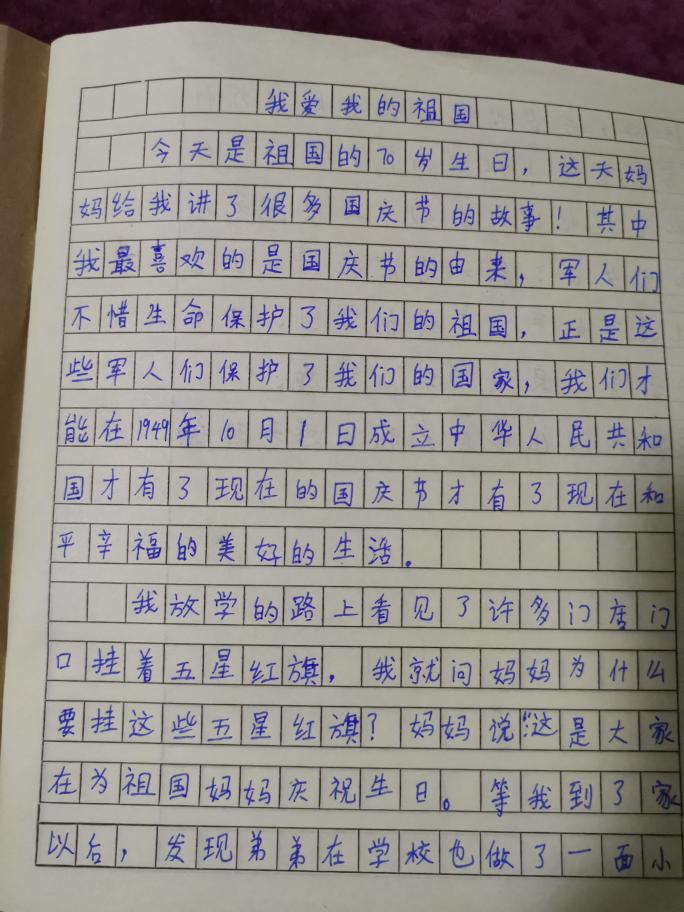 我爱我的祖国
今天是祖国的70岁生日，这天妈
妈给我讲了很多国庆节的故事！其中
我最喜欢的是国庆节的由来，军人们
不惜生命保护了我们的祖国，正是这
些军人们保护了我们的国家，我们才
能在1949年10月1日成立中华人民共和
国才有了现在的国庆节才有了现在和
平辛福的美好的生活。
我放学的路上看见了许多门店门
口挂着五星红旗，我就问妈妈为什么
要挂这些五星红旗？妈妈说“这是大家
在为祖国妈妈庆祝生日。等我到了家
以后，发现弟弟在学校也做了一面小